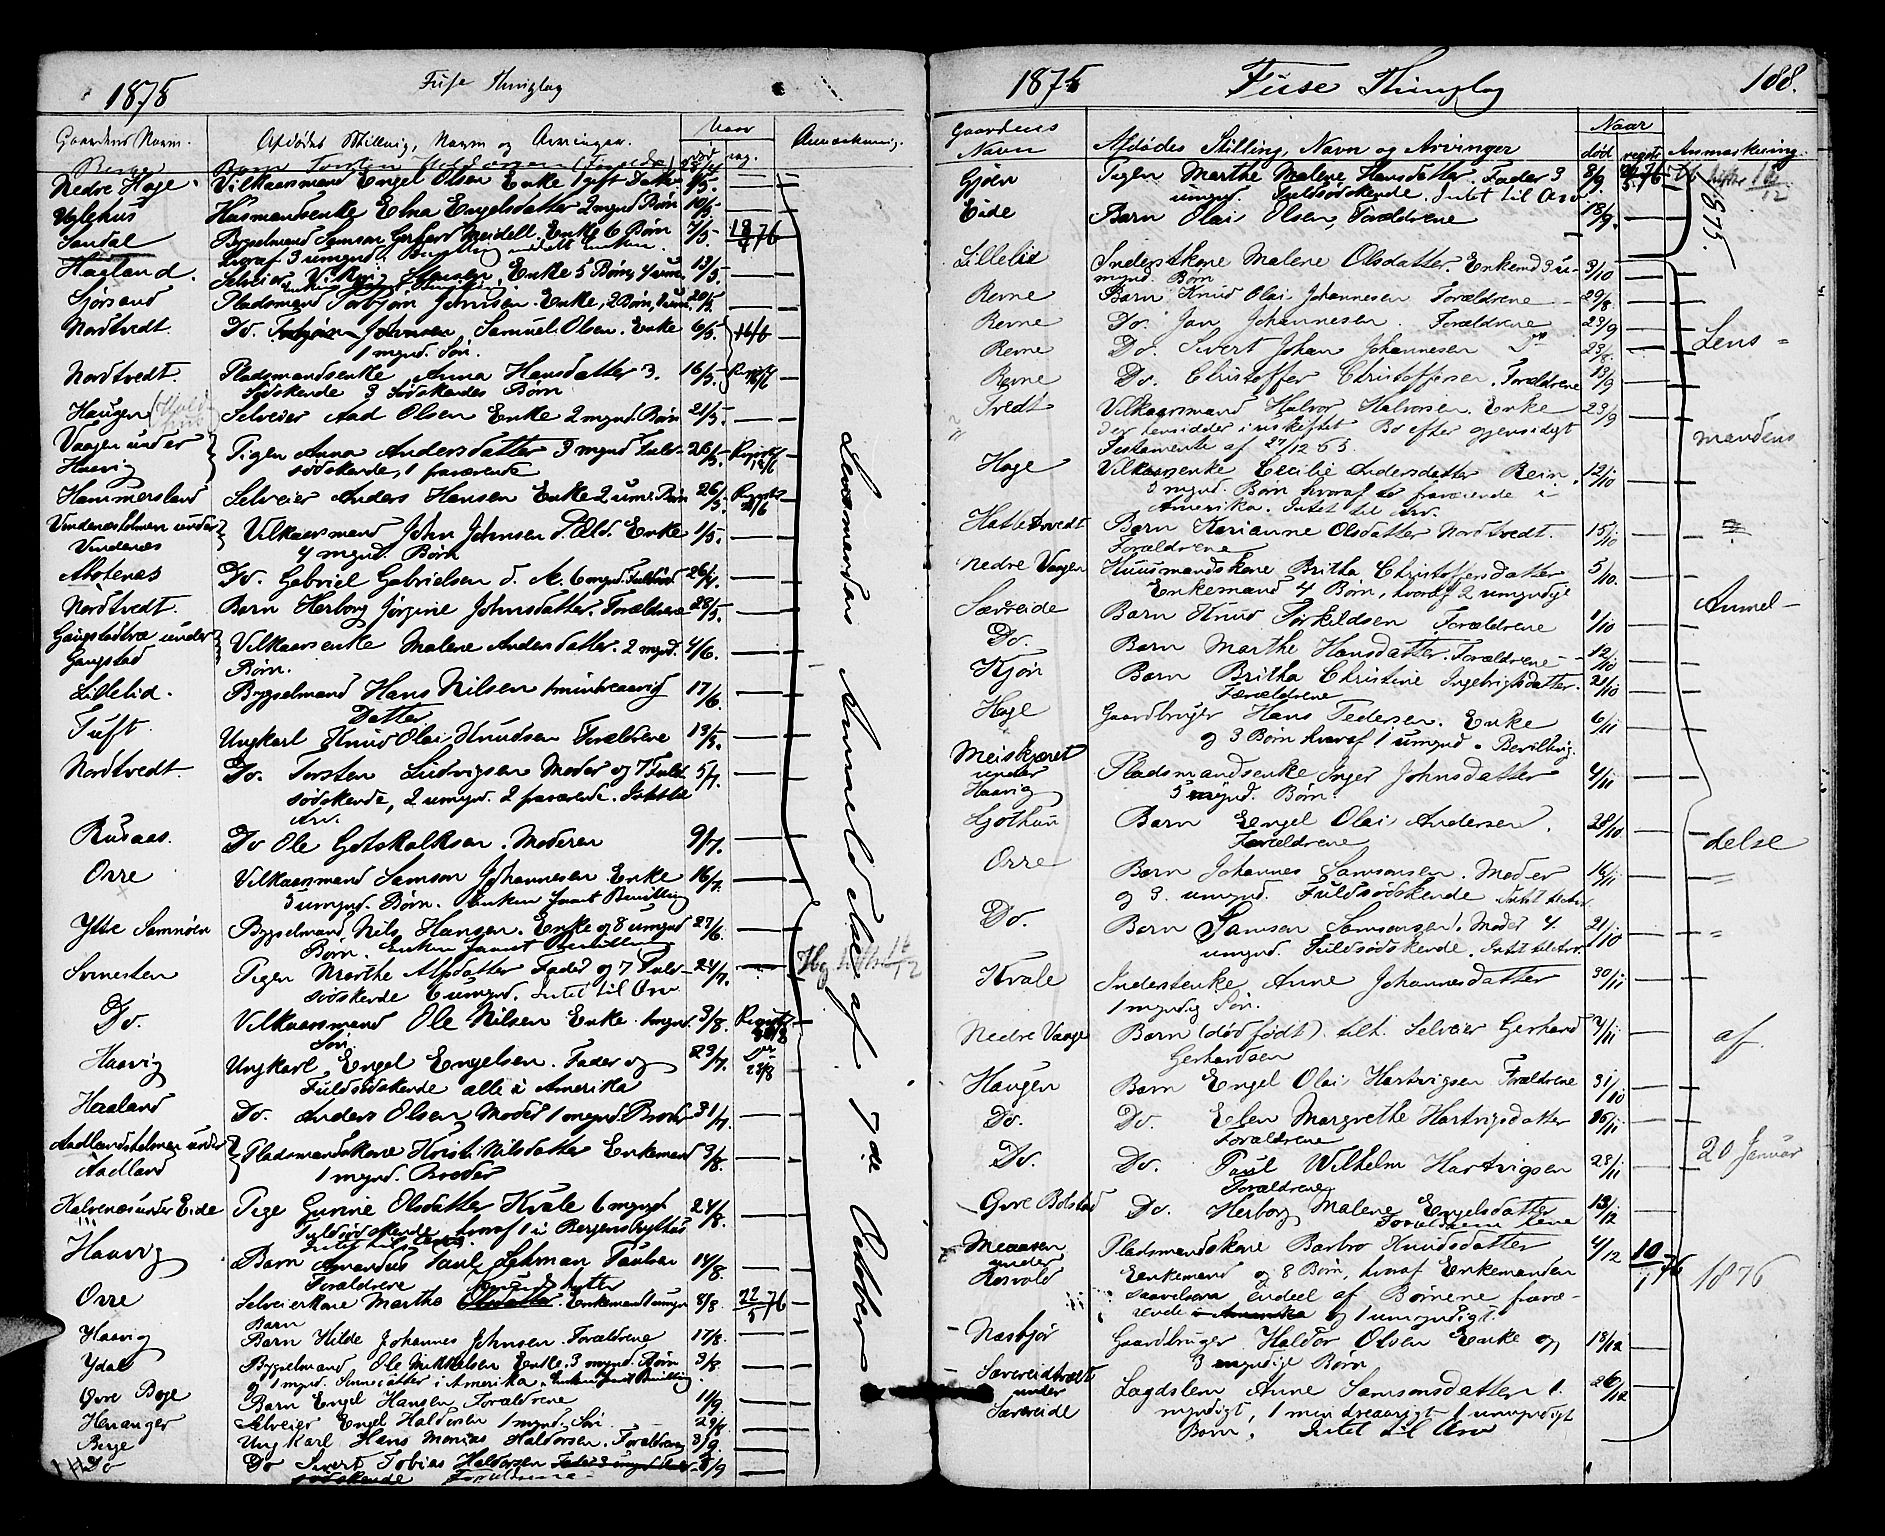 1875 Fuse Thinglag
Gaardens Navn. Afdødes Stilling, Navn og Arvinger. Naar død reg. Anmærkning.
Berge Barn Torsten Haldorsen (Forældre)
Nedre Hage. Vilkaarsmand Engel Olsen Enke 1 gift Datter 9/5. —
Uglehus Husmandsenke Elna Engelsdatter 2 mynd. Børn 10/5 —
Sandal Bygselmand Samson Gerhard Meidell. Enke 6 Børn 7/5. 18/4 76
hvoraf 3 umynd.
Haaland. Selveier Enke 5 Børn, 4 um. 13/5. —
Sjørsand Pladsmand Torbjørn Johnsen. Enke, 2 Børn, 20/5. —
Nordtvedt. Do. Torbjørn Johnsen, Samuel Olsen. Enke 6/5. 16/6
1 mynd. Søn.
Nordtvedt. Pladsmandsenke Anna Hansdatter 3. 16/5. 
Sødskende 3 Sødskendes Børn
Haugen Selveier Aad Olsen Enke 2 mynd. Børn 21/5. —
Vaagen under Haavig Pigen Anna Andersdatter 3 mynd Fuld- 26/5.
sødskende, 1 fraværende
Hammersland Selveier Anders Hansen Enke 2 um. Børn 26/5.
Vindenæsholmen under Vindenæs Vilkaarsmand John Johnsen d. Æld. Enke 1/5. —
4 mynd. Børn
Do. Gabriel Gabrielsen d. 6 mynd. 26/4. —
Nordtvedt. Barn Herborg Jørgine Johnsdatter. Forældrene 28/5. —
Gangstadtræ under Gangstad Vilkaarsenke Malene Andersdatter. 2 mynd. 4/6. —
Børn.
Lillelid. Bygselmand Hans Nilsen 1 mindreaarig 17/6. —
Datter
Tuft. Ungkarl Knud Olai Knudsen Forældrene 13/5. —
Nordtvedt. Do. Torsten Ludvigsen Moder og 7 Fuld- 5/7. —
sødskende, 2 umynd. 2 fraværende. Intet til
Arv.
Rusaas. Do Ole Gotskalksen. Moderen 9/7. —
Orre Vilkaarsmand Samson Johannesen. Enke 16/7. —
5 umynd. Børn. Enken faaet Bevilling
Ytre Samnøen Bygselmand Nils Hansen. Enke og 8 umynd 27/6. —
Børn. Enken faaet Bevilling
Svinesten Pigen Marthe Alfsdatter Fader og 7 Fuld- 24/7. —
sødskende 6 umynd. Intet til Arv
Do. Vilkaarsmand Ole Nilsen Enke 1 mynd. 3/8.
Søn
Haavig Ungkarl Engel Engelsen. Fader og 29/7. 28/8
Fuldsødskende alle i Amerika
Haaland Do. Anders Olsen Moder 1 mynd. Broder 31/7. —
Aadlandsholmen under Aadland Pladsmandskone Kristi Nilsdatter Enkemand 3/8. —
1 mynd. Broder
Halvenæs under Eide Pige Gurine Olsdatter Kvale 6 mynd 24/8. —
Fuldsødskende hvoraf 1 i Bergens Sygehus
Intet til Arv.
Haavig Barn Amandus Paul Lehman Paulsen 14/8. —
Forældrene
Orre Selveierkone Marthe Olsdatter. Enkemand umynd 8/8. 22/5 76
Barn
Haavig Barn Hilde Johannes Johnsen. Forældrene 17/8. —
Ydal Bygselmand Ole Mikkelsen Enke. 3 mynd. Børn 3/8. —
og 1 mynd. i Amerika.
Øvre Berge Barn Engel Hansen Forældrene 1/9. —
Henanger Selveier Engel Haldorsen 1 mynd. Søn. 29/8 —
Berge Ungkarl Hans Monias Haldorsen. Forældrene 3/9. —
Do Do Sivert Tobias Haldorsen Fader 3 umynd Fuld- 5/9 —
sødskende Forældrene
Lensmandens Anmeldelse af 7de October
1875 Fuse Thinglag 188.
Gaardens Navn Afdødes Stilling, Navn og Arvinger Naar død regstr Anmærkning.
Gjøen Pigen Marthe Malene Hansdatter. Fader 3 8/9
umynd. Fuldsødskende. Intet til Arv.
Eide Barn Olai Olsen, Forældrene 18/9. —
1875.
Lillelid Inderstkone Malene Olsdatter. Enkemd 3 u- 3/10 —
mynd. Børn
Revne Barn Knud Olai Johannesen Forældrene 29/8. —
Revne Do. Jan Johannesen. Forældrene 23/9 —
Revne Do. Sivert Johan Johannesen Do 23/8. —
Revne Do. Christoffer Christoffersen. Forældrene 13/9 —
Tvedt Vilkaarsmand Halvor Halvorsen. Enke 23/9 —
der hensidder i uskiftet Bo efter gjensidigt
Testamente af 27/12 65
Hage Vilkaarsenke Cecilie Andersdatter Rein. 12/10 —
5 mynd. Børn hvoraf er fraværende i
Amerika. Intet til Arv.
Hatletvedt Barn Karianne Olsdatter Nordtvedt. 15/10 —
Forældrene
Nedre Vaagen Huusmandskone Britha Christoffersdatter 5/10. —
Enkemand 4 Børn, hvoraf 2 umyndige
Sævereide Barn Knud Torkildsen Forældrene 1/10 —
Do. Barn Marthe Hansdatter. Forældrene 12/10 —
Kjøn Barn Britha Christine Ingebrigtsdatter. 21/10 —
Forældrene
Hage Gaardbruger Hans Pedersen. Enke 6/11 —
og 3 Børn hvoraf 1 umynd. Bevilling.
Meiskjæret under Haavig Pladsmandsenke Inger Johnsdatter 4/11 —
5 mynd. Børn.
Gjothun Barn Engel Olai Andersen. 28/10 —
Forældrene
Orre Barn Johannes Samsonsen. Moder 16/11 —
og 3. umynd. Fuldsødskende Intet til Arv.
Do. Barn Samson Samsonsen. Moder 4. 21/10 —
umynd. Fuldsødskende. Intet til Arv.
Kvale Inderstenke Anne Johannesdatter 30/11 —
1 myndig Søn.
Nedre Vaage Barn (dødfødt) tilh. Selveier Gerhard 2/11 —
Gerhardsen
Haugen Barn Engel Olai Hartvigsen Forældrene 31/10 —
Do. Do. Elen Margrethe Hartvigsdatter —
Forældrene
Do. Do. Paul Wilhelm Hartvigsen 28/11 —
Forældrene
Øvre Bolstad Do. Herborg Malene Engelsdatter 13/12 —
Forældrene leve
Meaasen under Røsvold Pladsmandskone Barbro Knudsdatter 4/12 10/1 76
Enkemand og 8 Børn, hvoraf Enkemanden
saavelsom endeel af Børnene fravæ-
rende i Amerika og 1 umyndigt.
Næsbjør Gaardbruger Haldor Olsen Enke og 18/12 —
3 myndige Børn
Sævereidtræet under Sævereide Lægdslem Anne Samsonsdatter 1. 26/12 —
myndigt, 1 mindreaarigt 1 umyndigt
Børn. Intet til Arv
Lens-
mandens
Anmel-
delse
af
20 Januar
1876